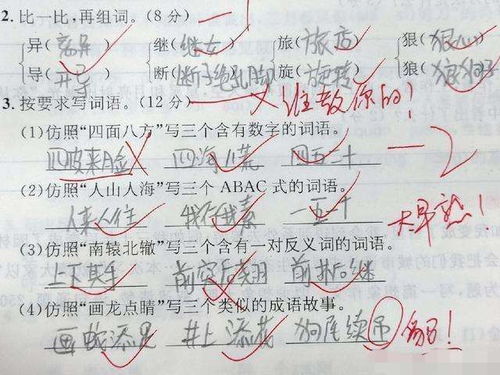 2. 比一比,再组词。(8 分) —1
异(离异) 继(继女) 旅(旅店) 狠(狠心)
导(开导) 断(断子绝孙脚) 旋(旋转) 狼(
3. 按要求写词语。(12 分) 谁教你的!
(1)仿照“四面八方”写三个含有数字的词语。
四海八荒 四五二十 —2
(2)仿照“人山人海”写三个 ABAC 式的词语。
人来人往 我行我素 一五一十 太早熟!
(3)仿照“南辕北辙”写三个含有一对反义词的词语。
上下其手 前突后翘 前扑后继
(4)仿照“画龙点睛”写三个类似的成语故事。
画蛇添足 井上添花 狗尾续吊